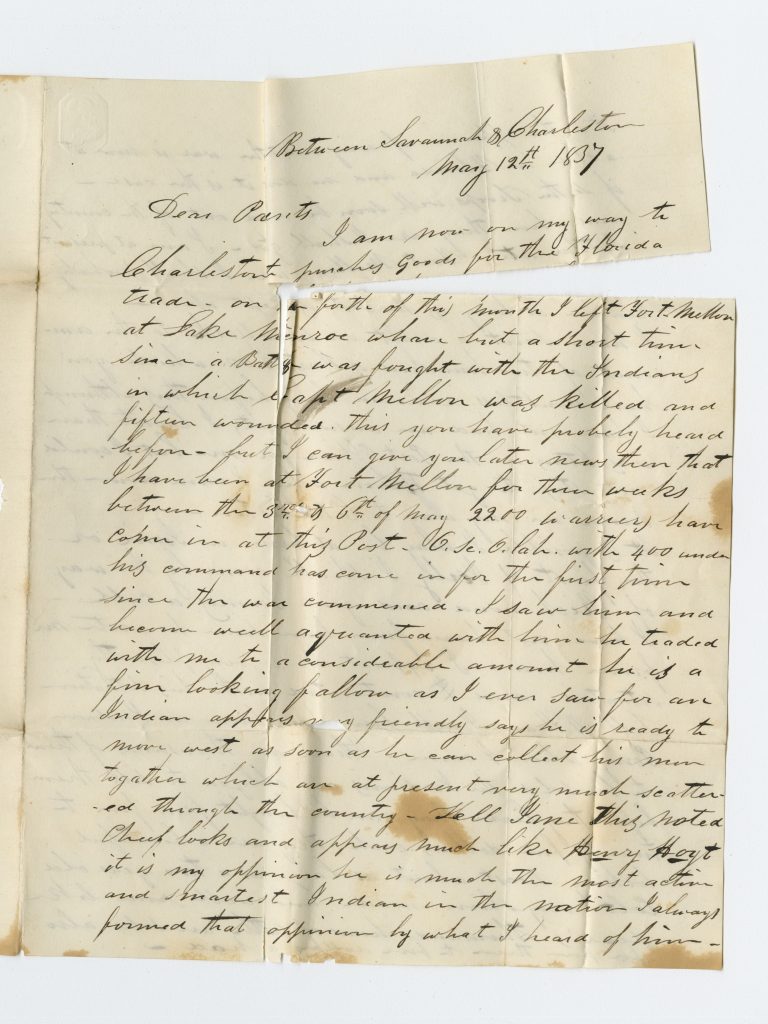 Between Savannah & Charleston
May 12th 1837
Dear Parents
I am now on my way to
Charleston to purches Goods for the Florida
trade - on the forth of this month I left Fort Mellon
at Lake Monroe whare but a short time
since a Battle was fought with the Indians
in which Capt Mellon was killed and
fifteen wounded. this you have probely heard
before - but I can give you later news then that
I have been at Fort Mellon for three weeks
between the 3rd & 6th of May 2200 warriers have
come in at this Post - O. se. O. lah. with 400 under
his command has come in for the first time
since the war commenced - I saw him and
become well aquanted with him he traded
with me to a consideable amount he is a
fine looking fallow as I ever saw for an
Indian appears very friendly says he is ready to
move west as soon as he can collect his men
together which are at present very much scatter-
-ed through the country - Tell Jane this noted
Cheef looks and appears much like Henry Hoyt
it is my oppinion he is much the most active
and smartest Indian in the nation I always
formed that oppinion by what I heard of him -